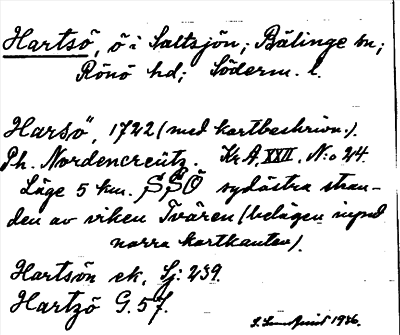 Hartsö, ö i Saltsjön; Bälinge sn;
Rönö hd; Söderm. l.
Harsö", 1722 (med kartbeskrivn.).
Ph. Nordencreütz. Kr A, XXII, N:o 24.
Läge 5 km. SSÖ sydöstra stran-
den av viken Tvären (belägen invid
norra kartkanten).
Hartsön ek. Sj: 239.
Hartzö G. 57.
1926.